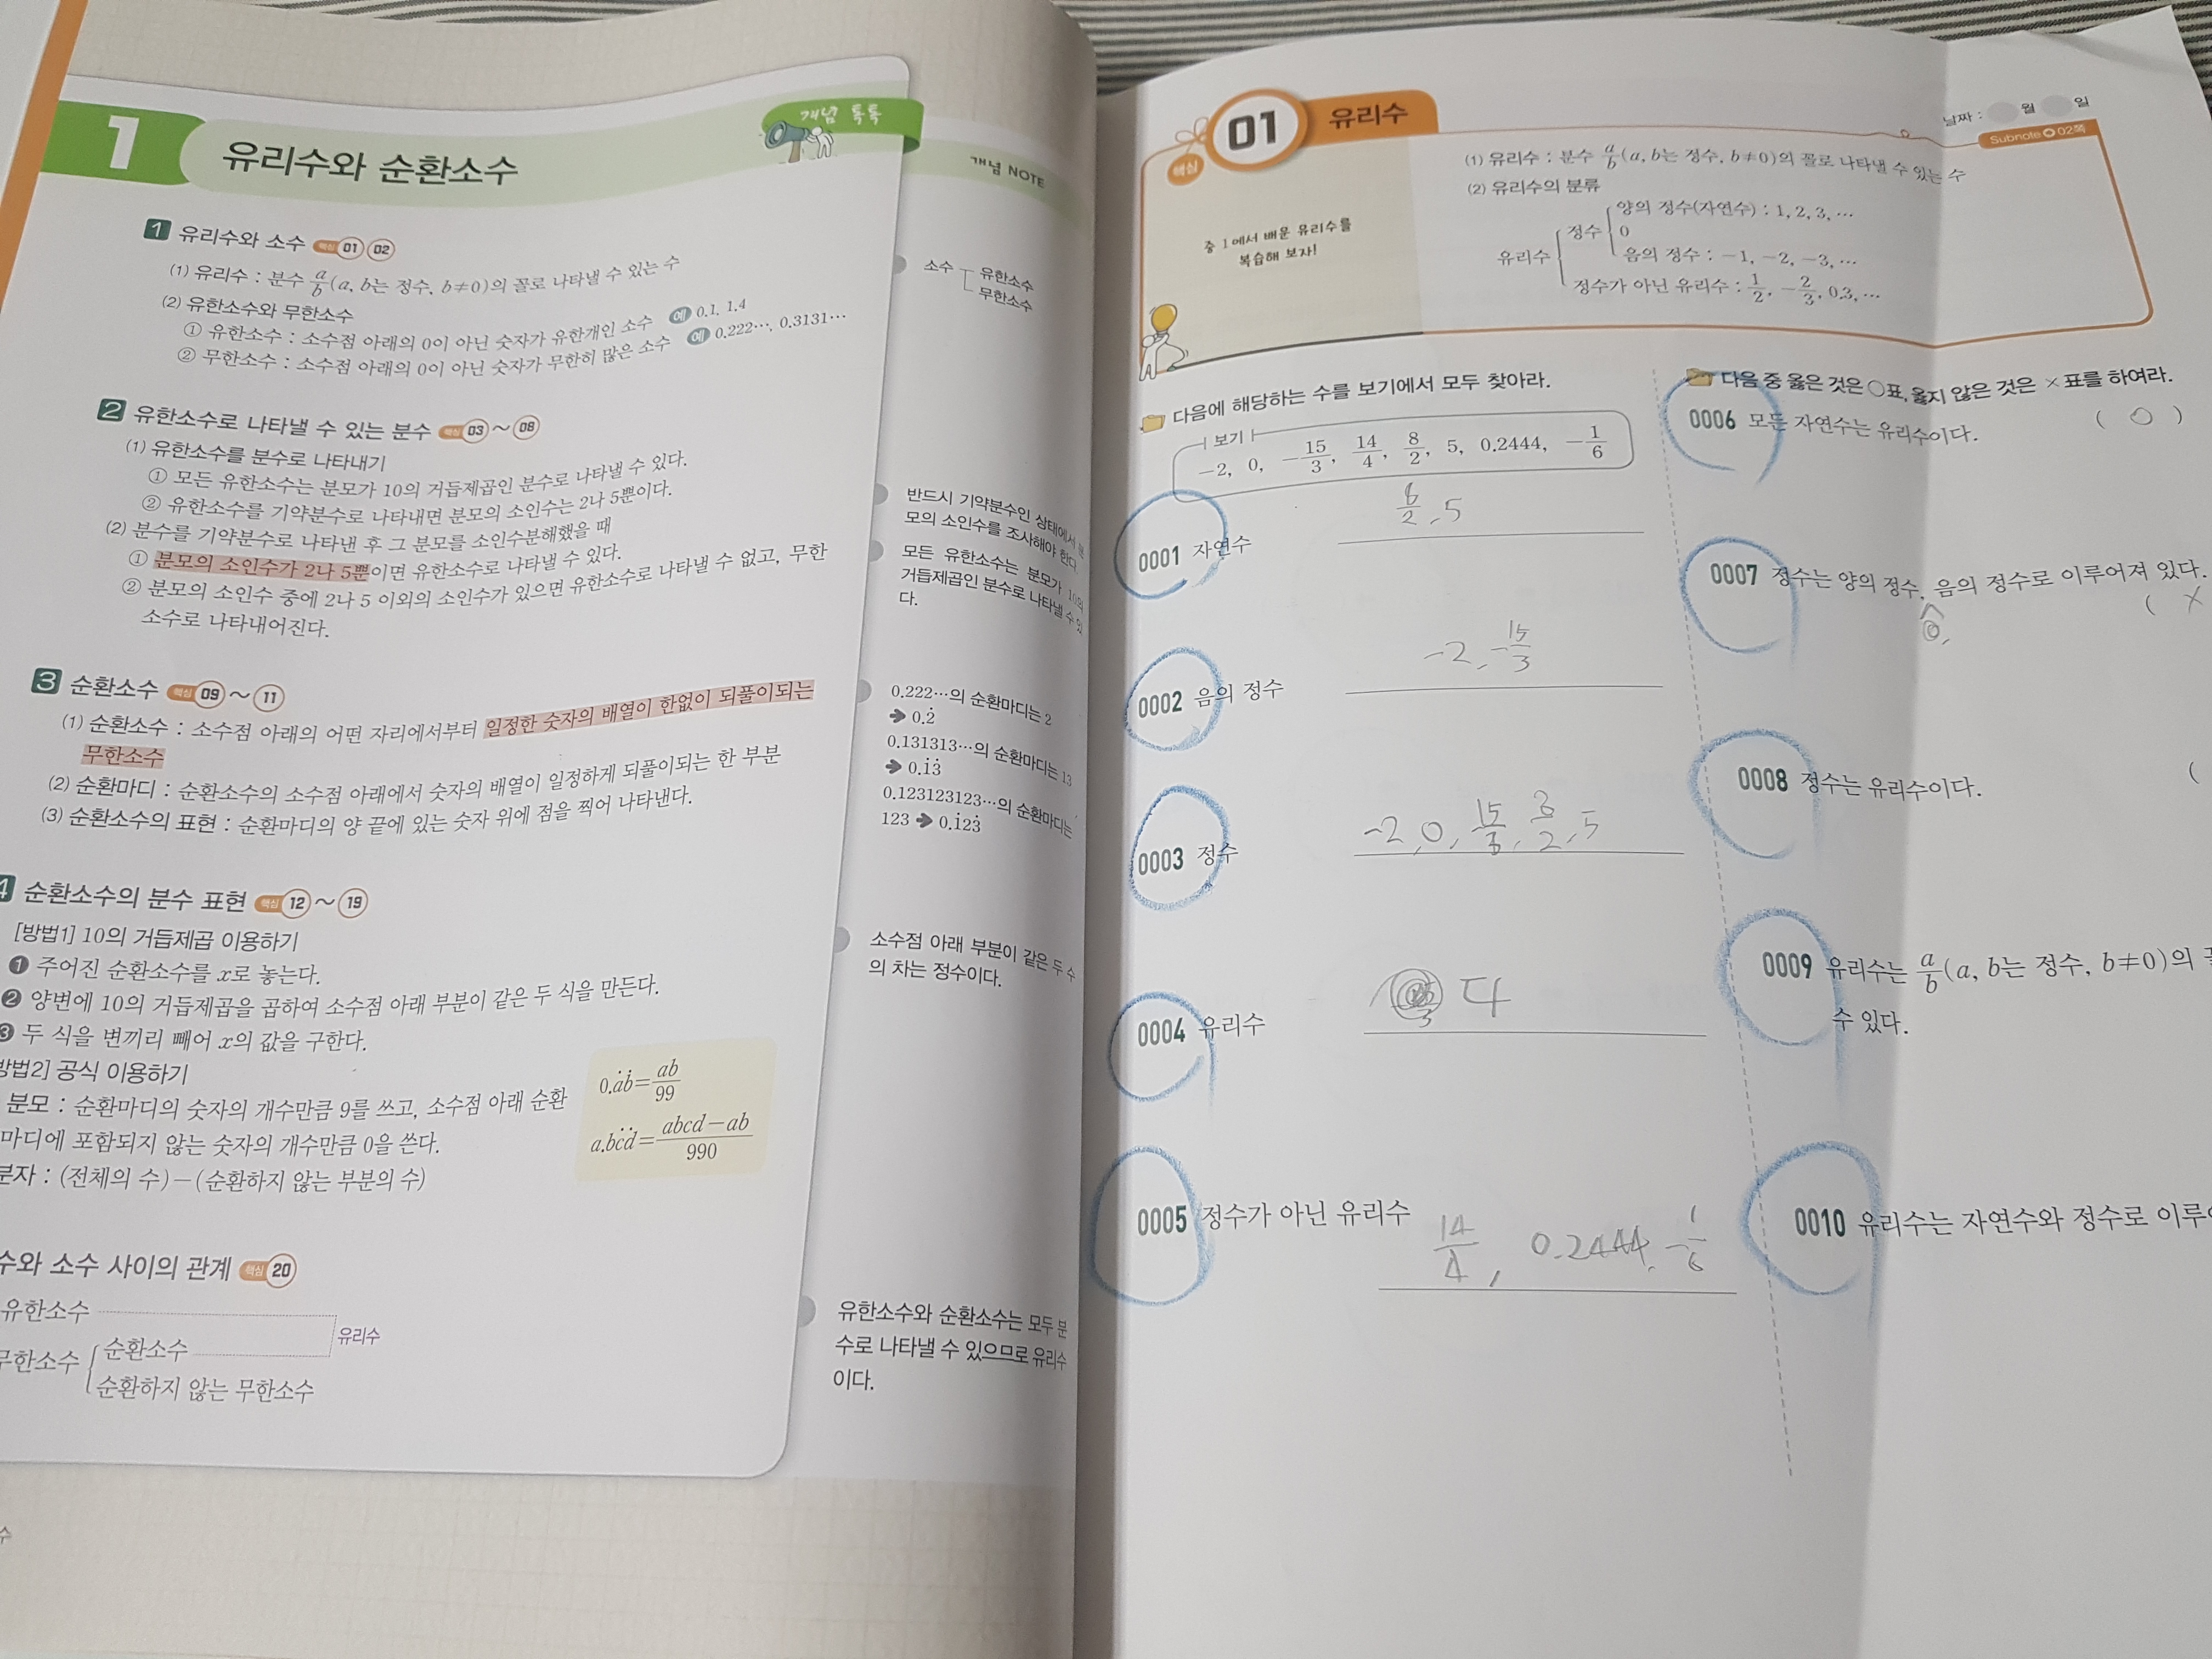 1 유리수와 순환소수
개념 톡톡
개념 NOTE
1 유리수와 소수 핵심 01 02
(1) 유리수 : 분수 a/b(a, b는 정수, b≠0)의 꼴로 나타낼 수 있는 수
(2) 유한소수와 무한소수
① 유한소수 : 소수점 아래의 0이 아닌 숫자가 유한개인 소수 예 0.1, 1.4
② 무한소수 : 소수점 아래의 0이 아닌 숫자가 무한히 많은 소수 예 0.222…, 0.3131…
2 유한소수로 나타낼 수 있는 분수 핵심 03 ~ 08
(1) 유한소수를 분수로 나타내기
① 모든 유한소수는 분모가 10의 거듭제곱인 분수로 나타낼 수 있다.
② 유한소수를 기약분수로 나타내면 분모의 소인수는 2나 5뿐이다.
(2) 분수를 기약분수로 나타낸 후 그 분모를 소인수분해했을 때
① 분모의 소인수가 2나 5뿐이면 유한소수로 나타낼 수 있다.
② 분모의 소인수 중에 2나 5 이외의 소인수가 있으면 유한소수로 나타낼 수 없고, 무한
소수로 나타내어진다.
3 순환소수 핵심 09 ~ 11
(1) 순환소수 : 소수점 아래의 어떤 자리에서부터 일정한 숫자의 배열이 한없이 되풀이되는
무한소수
(2) 순환마디 : 순환소수의 소수점 아래에서 숫자의 배열이 일정하게 되풀이되는 한 부분
(3) 순환소수의 표현 : 순환마디의 양 끝에 있는 숫자 위에 점을 찍어 나타낸다.
4 순환소수의 분수 표현 핵심 12 ~ 19
[방법1] 10의 거듭제곱 이용하기
❶ 주어진 순환소수를 x로 놓는다.
❷ 양변에 10의 거듭제곱을 곱하여 소수점 아래 부분이 같은 두 식을 만든다.
❸ 두 식을 변끼리 빼어 x의 값을 구한다.
방법2] 공식 이용하기
분모 : 순환마디의 숫자의 개수만큼 9를 쓰고, 소수점 아래 순환
마디에 포함되지 않는 숫자의 개수만큼 0을 쓴다.
분자 : (전체의 수)−(순환하지 않는 부분의 수)
0.ȧḃ=ab/99
a.bċḋ=abcd−ab/990
수와 소수 사이의 관계 핵심 20
유한소수
무한소수 순환소수
순환하지 않는 무한소수
유리수
소수 유한소수
무한소수
반드시 기약분수인 상태에서 분
모의 소인수를 조사해야 한다.
모든 유한소수는 분모가 10의
거듭제곱인 분수로 나타낼 수 있
다.
0.222…의 순환마디는 2
➔ 0.2̇
0.131313…의 순환마디는 13
➔ 0.1̇3̇
0.123123123…의 순환마디는
123 ➔ 0.1̇23̇
소수점 아래 부분이 같은 두 수
의 차는 정수이다.
유한소수와 순환소수는 모두 분
수로 나타낼 수 있으므로 유리수
이다.
핵심 01 유리수
날짜 : 월 일
Subnote 02쪽
중 1에서 배운 유리수를
복습해 보자!
(1) 유리수 : 분수 a/b(a, b는 정수, b≠0)의 꼴로 나타낼 수 있는 수
(2) 유리수의 분류
유리수 정수 양의 정수(자연수) : 1, 2, 3, …
0
음의 정수 : −1, −2, −3, …
정수가 아닌 유리수 : 1/2, −2/3, 0.3, …
다음에 해당하는 수를 보기에서 모두 찾아라.
보기
−2, 0, −15/3, 14/4, 8/2, 5, 0.2444, −1/6
0001 자연수 8/2, 5
0002 음의 정수 -2, -15/3
0003 정수 -2, 0, 15/3, 8/2, 5
0004 유리수 다
0005 정수가 아닌 유리수 14/4, 0.2444, -1/6
다음 중 옳은 것은 ○표, 옳지 않은 것은 ×표를 하여라.
0006 모든 자연수는 유리수이다. ( ○ )
0007 정수는 양의 정수, 음의 정수로 이루어져 있다.
( ×
0,
0008 정수는 유리수이다. (
0009 유리수는 a/b(a, b는 정수, b≠0)의
수 있다.
0010 유리수는 자연수와 정수로 이루
수